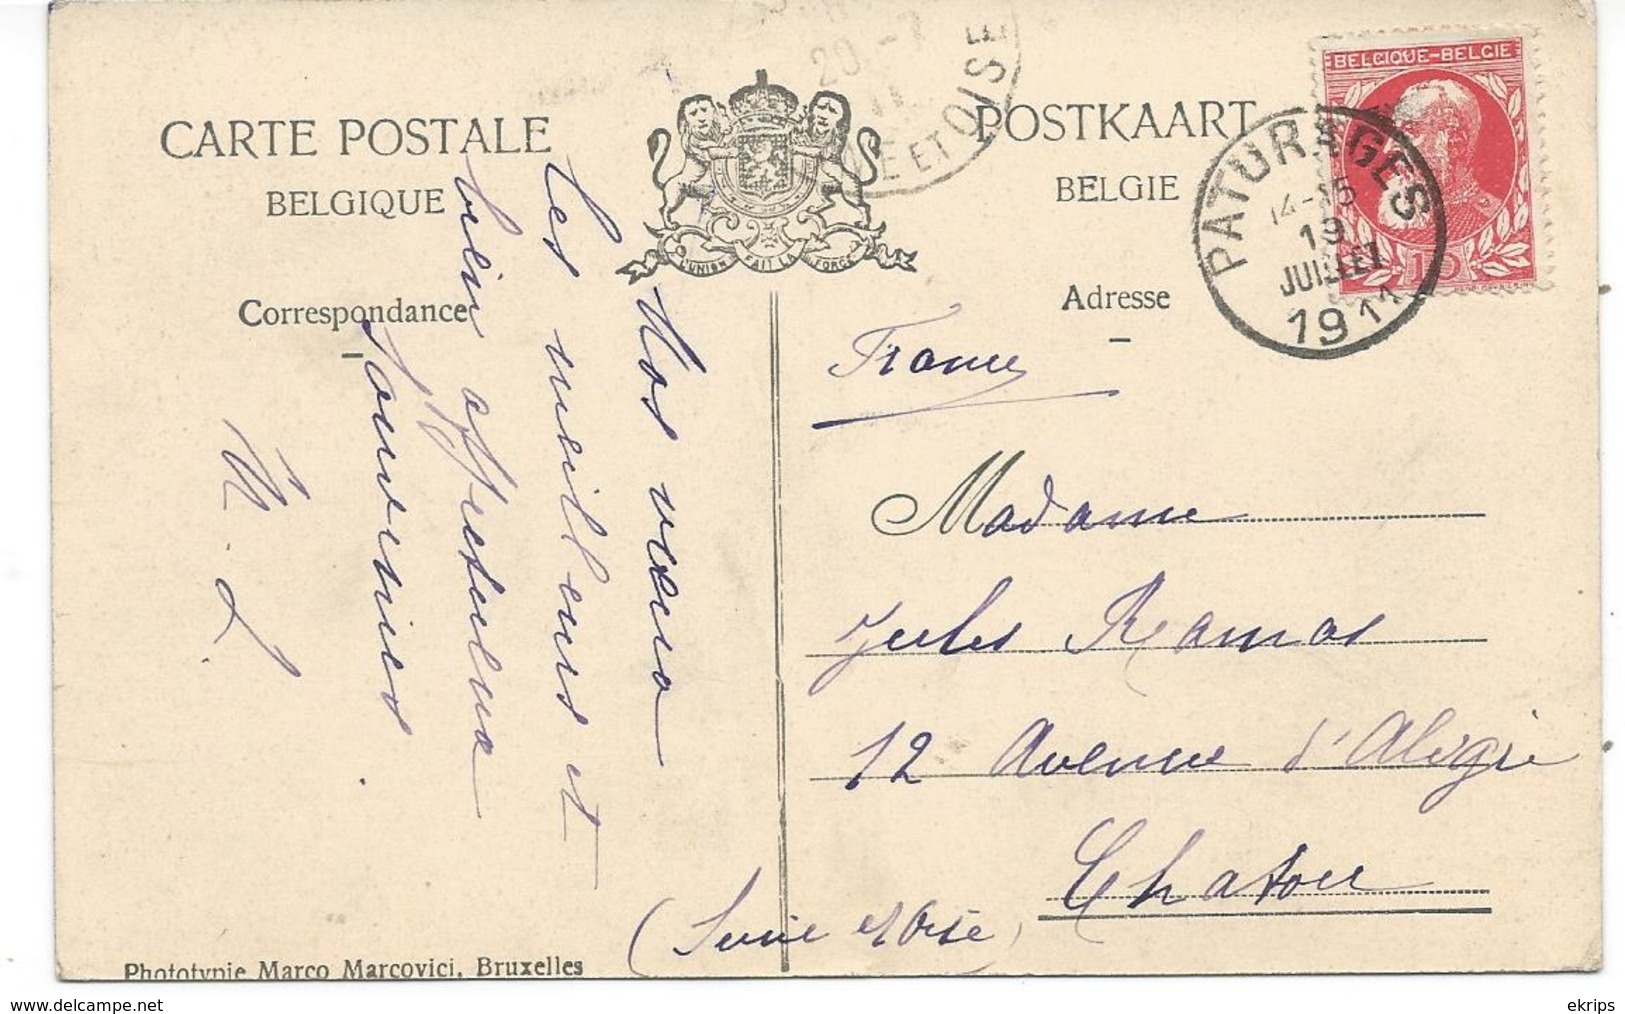 CARTE POSTALE
BELGIQUE
Correspondance
POSTKAART
BELGIE
Adresse
L'UNION FAIT LA FORCE
20 - 7
11
ET OISE
BELGIQUE-BELGIE
10
PATURAGES
14-15
19
JUILLET
1911
Nos vœux
les meilleurs et
bien affectueux
souvenirs
L.
France
Madame
Jules Ramas
12 Avenue d'Aligre
Chatou
(Seine et Oise)
Phototypie Marco Marcovici, Bruxelles
www.delcampe.net
ekrips